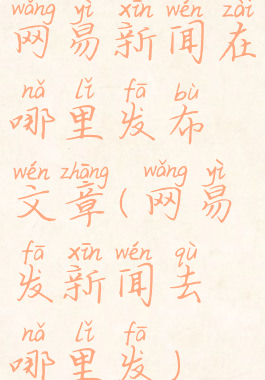 wǎng yì xīn wén zài
网易新闻在
nǎ lǐ fā bù
哪里发布
wén zhāng wǎng yì
文章(网易
fā xīn wén qù
发新闻去
nǎ lǐ fā
哪里发)